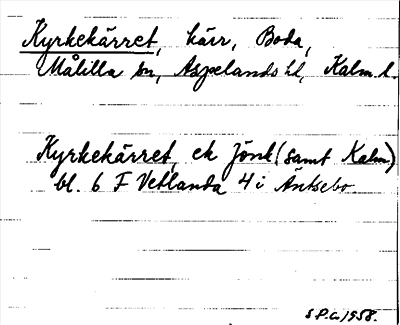 Kyrkekärret, kärr, Boda,
Målilla sn, Aspelands hd, Kalm. l.
Kyrkekärret, ek Jönk (samt Kalm)
bl. 6 F Vetlanda 4 i Äntsebo.
S P.a. 1958.